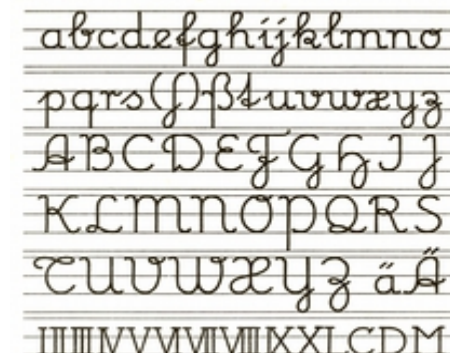 abcdefghijklmno
pqrs(ſ)ßtuvwxyz
ABCDEFGHIJ
KLMNOPQRS
TUVWXYZ äÄ
I II III IV V VI VII VIII IX X L C D M